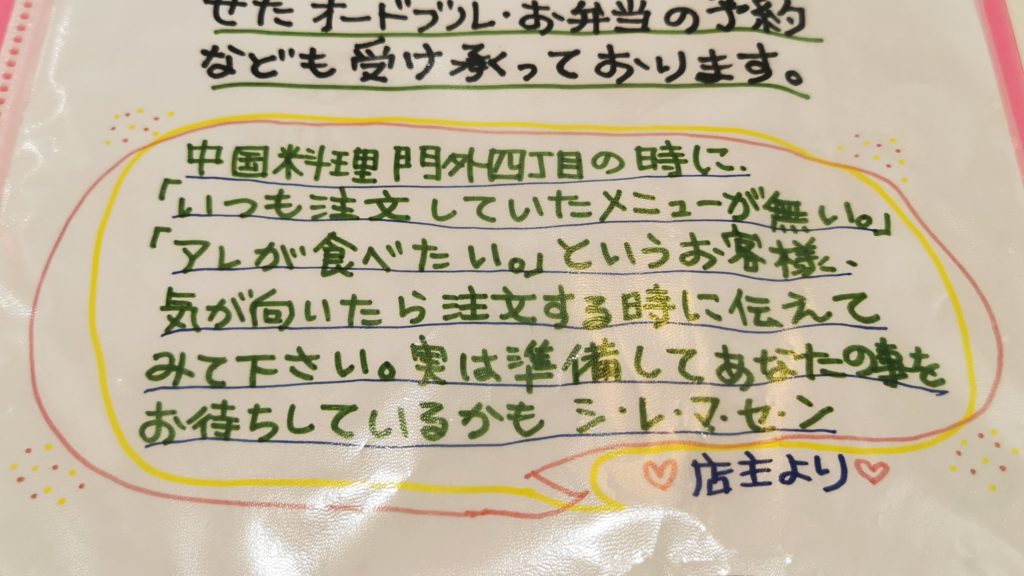 せたオードブル・お弁当の予約
なども受け承っております。
中国料理 門外四丁目の時に、
「いつも注文していたメニューが無い。」
「アレが食べたい。」というお客様、
気が向いたら注文する時に伝えて
みて下さい。実は準備してあなたの事を
お待ちしているかも シ・レ・マ・セ・ン
♡店主より♡